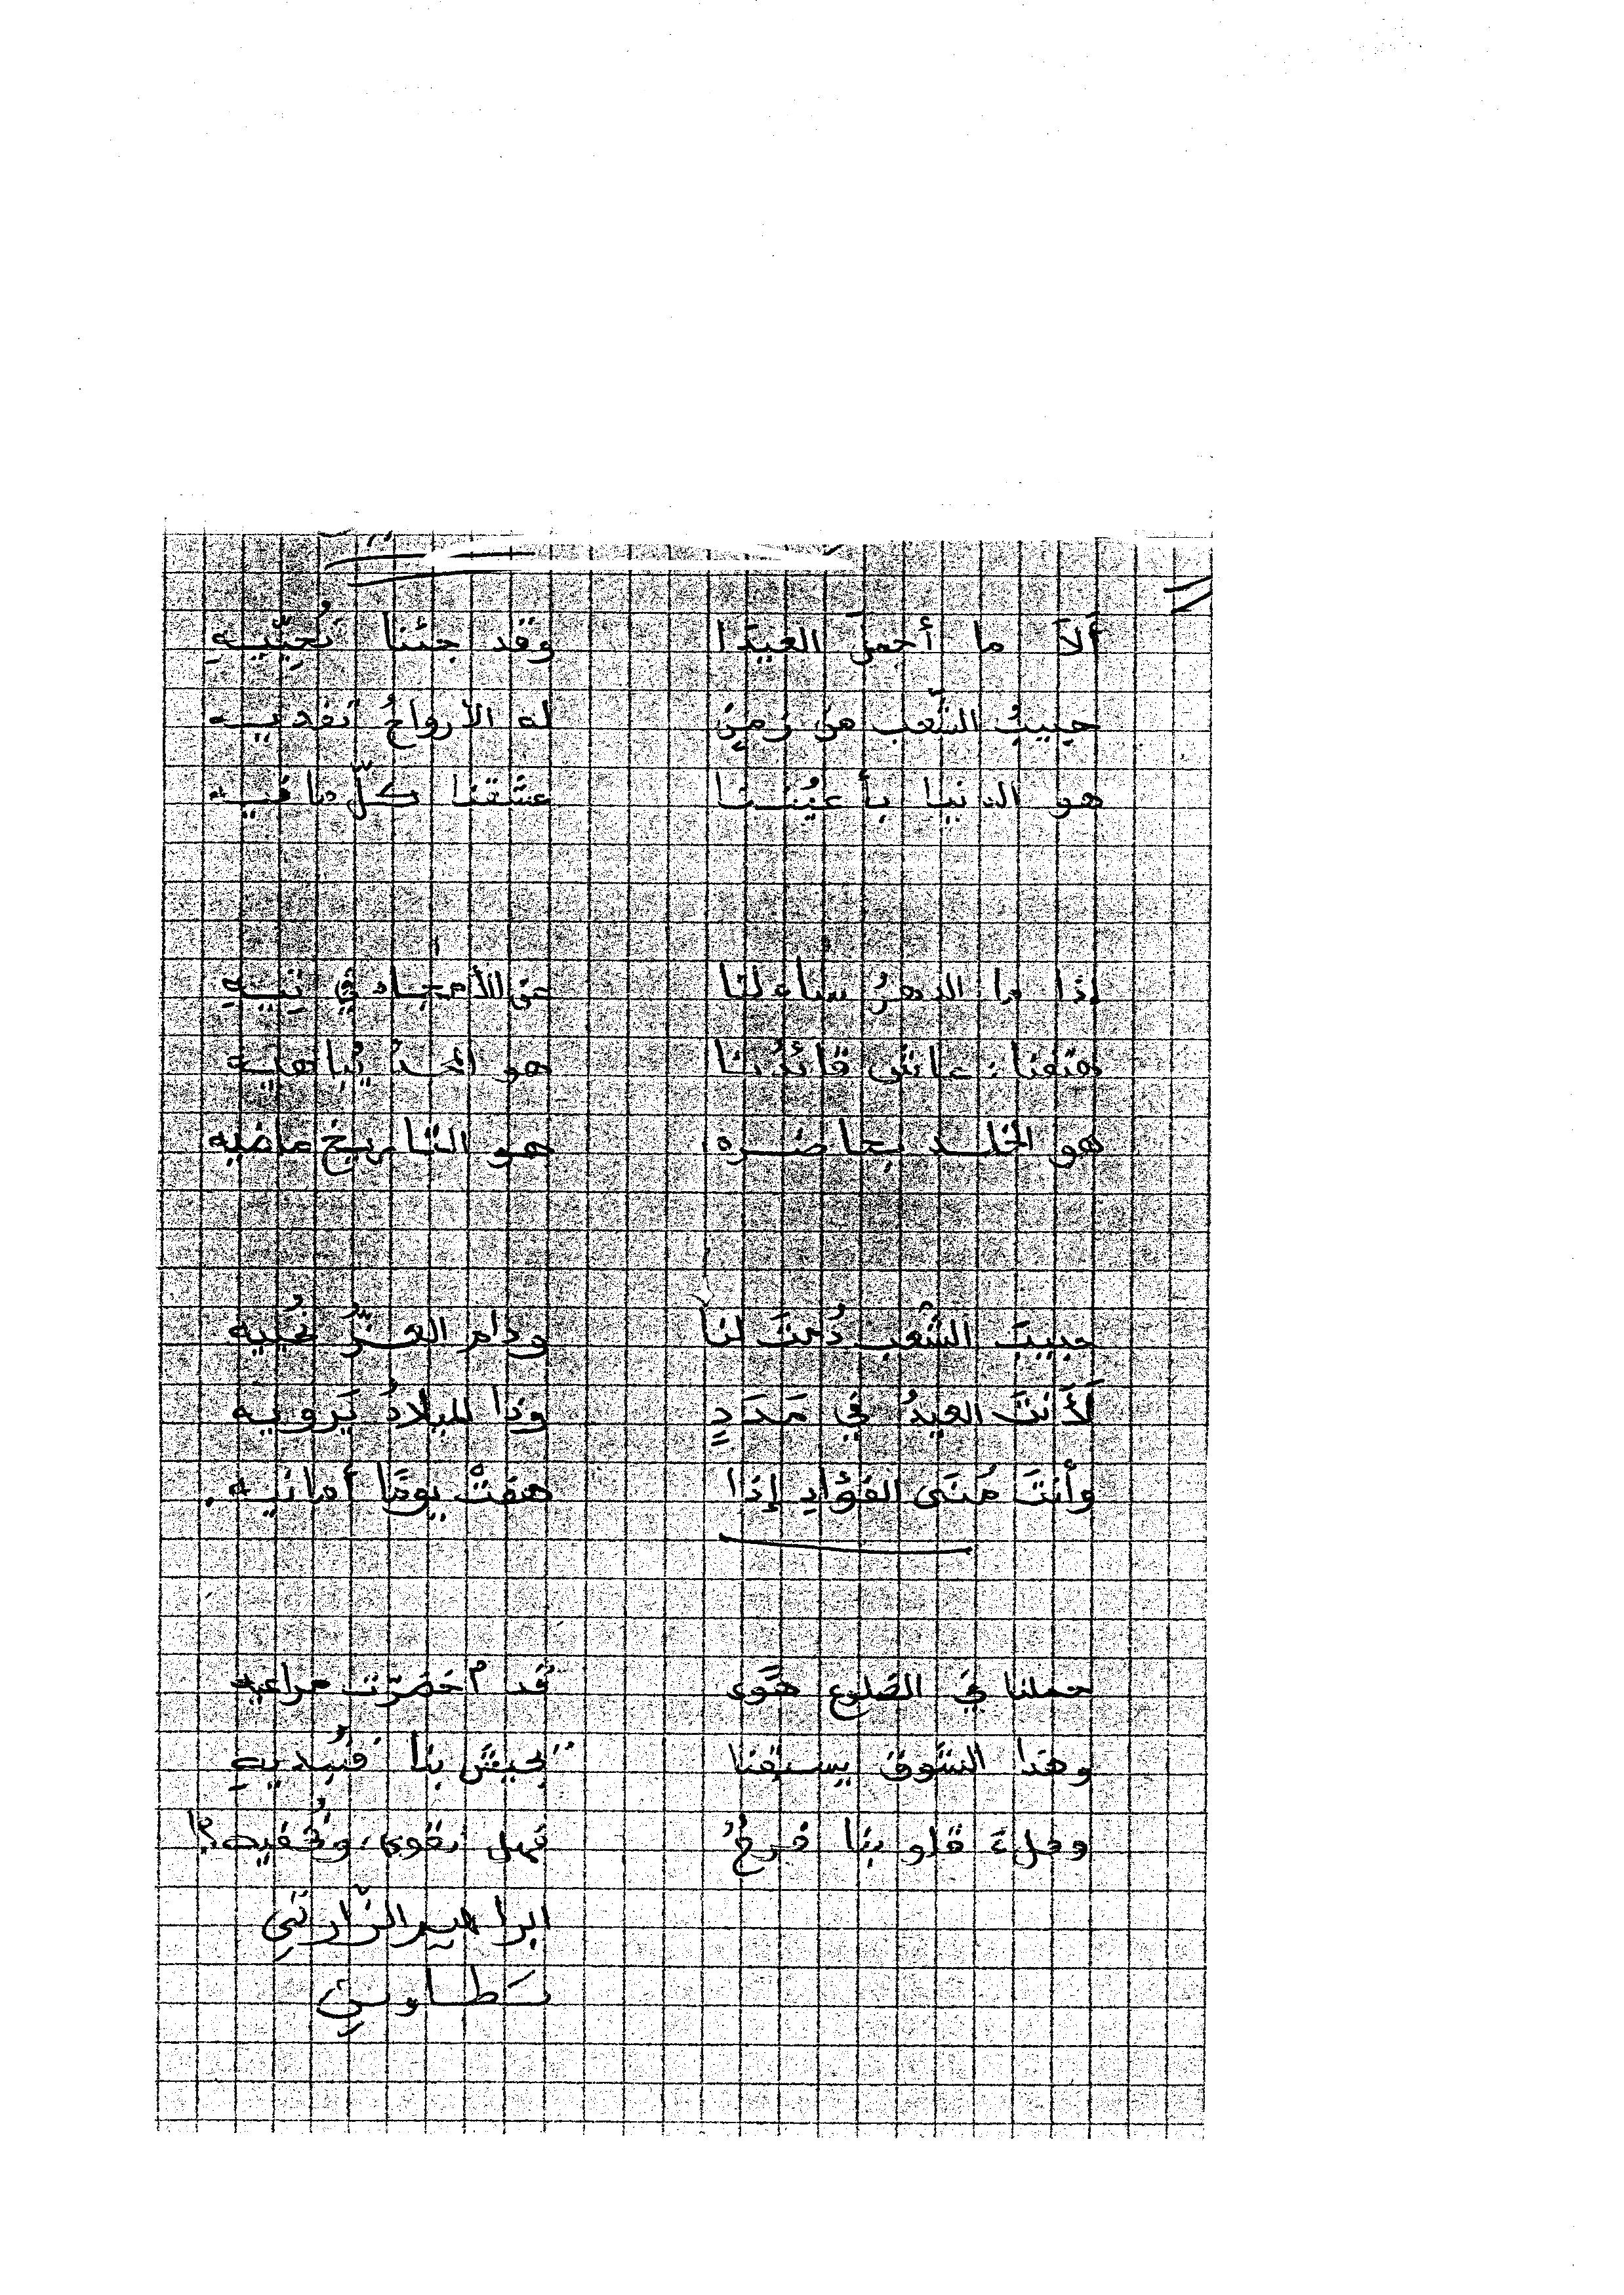 أَلاَ ما أجملَ العيدَا وقَد جئنا نُحيِّيــهِ
حبيبُ الشَّعب من زمنٍ له الأرواحُ تفديــه
هو الدنيا بأعيُننا عشقنا كلّ ما فيــه
إذا ما الدهرُ ساءلنا عن الأمجاد في تِيــهِ
هتفنا: عاش قائدُنا هو المجدُ يُباهيــه
هو الخلــد بحاضــره، هــو التاريخ ماضيه
حبيبَ الشَّعب دُمتَ لنا ودام العــزُّ نُحييه
لَأَنتَ العيدُ في مَدَدٍ وذا الميلادُ يَرويــه
وأنتَ مُنَى الفؤادِ إذا هفتْ يومًا أمانيــه.
حملنا في الضلوع هَوى قد اخضرّت مراعيه
وهذا الشوق يسبقنا يجيش بنا فنُبديــهِ
وملءَ قلوبنا فرحٌ فهل نقوى، ونُخفيه؟!
ابراهيم الزّاراتي
تــطــاويــن